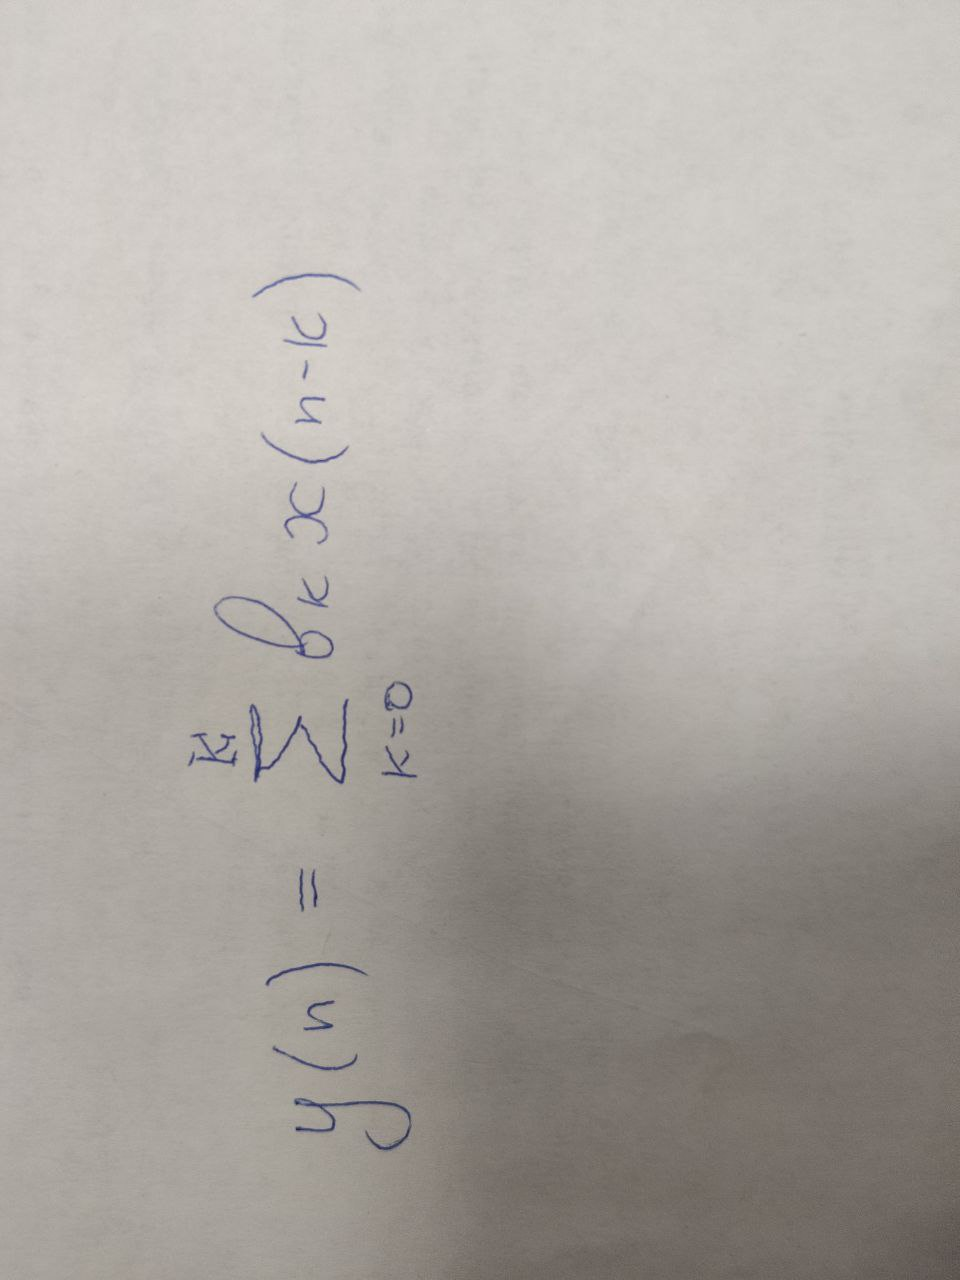 y(n) = \sum_{k=0}^{K} b_k x(n-k)